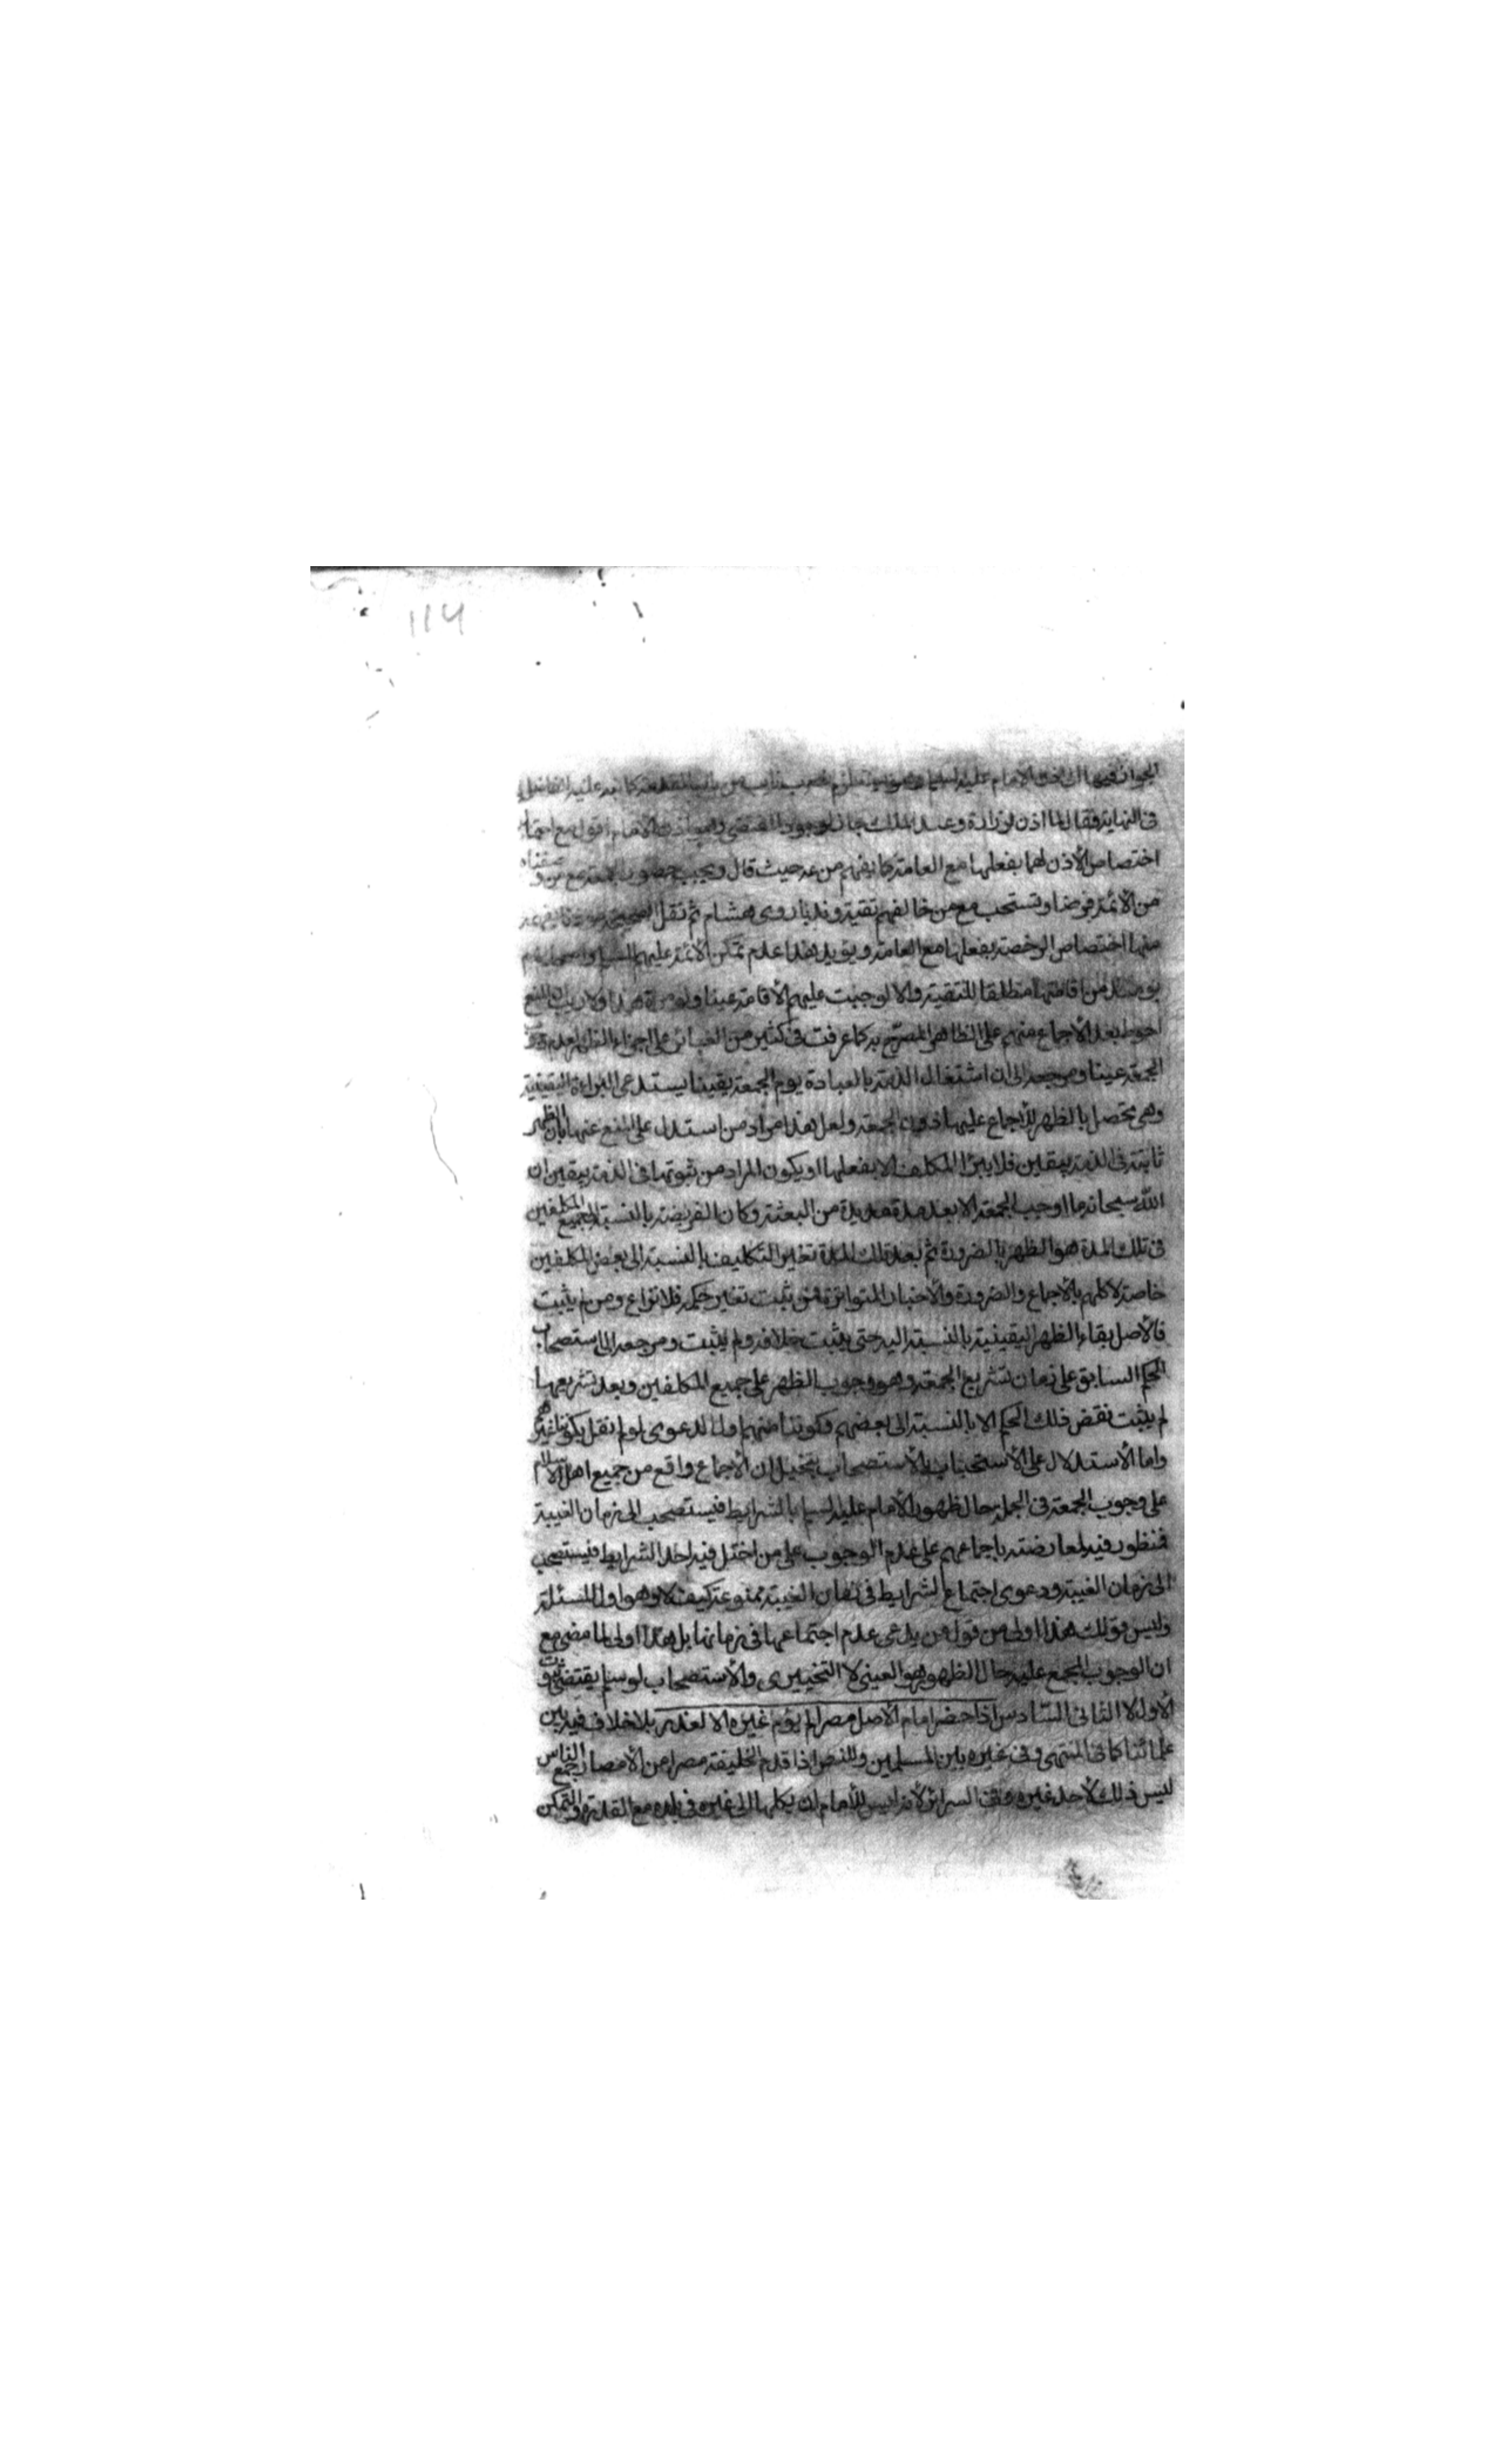 114
الجواز فيها اذن الامام عليه السلام وهو يستلزم نصب نايب من باب المقدمة كما نبه عليه الفاضل
فى النهاية فقال لما اذن لزرارة وعبد الملك جاز لوجود المقتضى وهو اذن الامام اقول مع احتمال
اختصاص الأذن لهما بفعلها مع العامة كما يفهم من عد حيث قال ويجب حضور الجمعة مع من وصفناه
من الأئمة فرضا وتستحب مع من خالفهم تقية وندبا روى هشام ثم نقل الصحيحة
منها اختصاص الرخصة بفعلها مع العامة ويويد هذا عدم تمكن الأئمة عليهم السلام
يومئذ من اقامتها مطلقا للتقية والا لوجبت عليهم الأقامة عينا ولا ريب ان المنع
احوط بعد الأجماع منهم على الظاهر المصرح به كما عرفت فى كثير من العبائر على اجزاء الظهر لعدم وجوب
الجمعة عينا ومرجعه الى ان اشتغال الذمة بالعبادة يوم الجمعة يقينا يستدعى البراءة اليقينية
وهى تحصل بالظهر للأجماع عليها دون الجمعة ولعل هذا مراد من استدل على المنع عنها بان الظهر
ثابتة فى الذمة بيقين فلا يبرأ المكلف الا بفعلها او يكون المراد من ثبوتها فى الذمة بيقين ان
الله سبحانه ما اوجب الجمعة الا بعد مدة مديدة من البعثة وكان الفريضة بالنسبة الى جميع المكلفين
فى تلك المدة هو الظهر بالضرورة ثم بعد تلك المدة تغير التكليف بالنسبة الى بعض المكلفين
خاصة لا كلهم بالأجماع والضرورة والأخبار المتواترة فمن ثبت تغير حكمه فلا نزاع ومن لم يثبت
فالأصل بقاء الظهر اليقينية بالنسبة اليه حتى يثبت خلافه ولم يثبت ومرجعه الى استصحاب
الحكم السابق على زمان تشريع الجمعة وهو وجوب الظهر على جميع المكلفين وبعد تشريعها
لم يثبت نقض ذلك الحكم الا بالنسبة الى بعضهم وكوننا منهم اول الدعوى لو لم نقل بكوننا غيرهم
واما الأستدلال على الأستحباب بالأستصحاب بتخيل ان الأجماع واقع من جميع اهل الاسلام
على وجوب الجمعة فى الجملة حال ظهور الأمام عليه السلام بالشرايط فيستصحب الى زمان الغيبة
فمنظور فيه لمعارضته باجماعهم على عدم الوجوب على من اختل فيه احد الشرايط فيستصحب
الى زمان الغيبة ودعوى اجتماع الشرايط فى زمان الغيبة ممنوعة كيف لا وهو اول المسئلة
وليس قولك هذا اولى من قول من يدعى عدم اجتماعها فى زماننا بل هذا اولى لما مضى مع
ان الوجوب المجمع عليه حال الظهور هو العينى لا التخييرى والأستصحاب لو سلم يقتضى ثبوت
الأول لا الثانى السادس اذا حضر امام الأصل مصرا لم يؤم غيره الا لعذر بلا خلاف فيه بين
علمائنا كما فى المنتهى وفى غيره بين المسلمين وللنص اذا قدم الخليفة مصرا من الأمصار جمع الناس
ليس ذلك لأحد غيره وفى السرائر لأنه ليس للأمام ان يكلها الى غيره فى بلده مع القدرة والتمكن